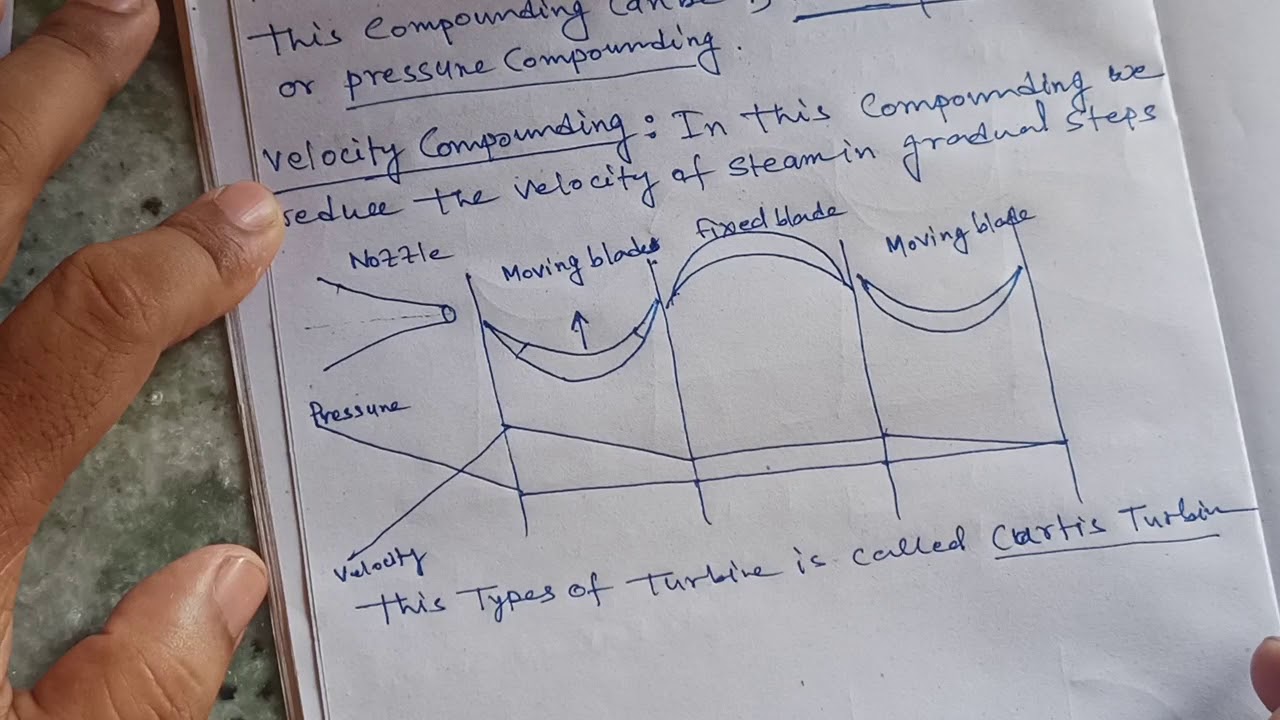 this compounding can be
or pressure compounding.
velocity compounding: In this compounding we
reduce the velocity of steam in gradual steps
Nozzle
Moving blades
fixed blade
Moving blade
Pressure
Velocity
This Types of Turbine is called Curtis Turbin